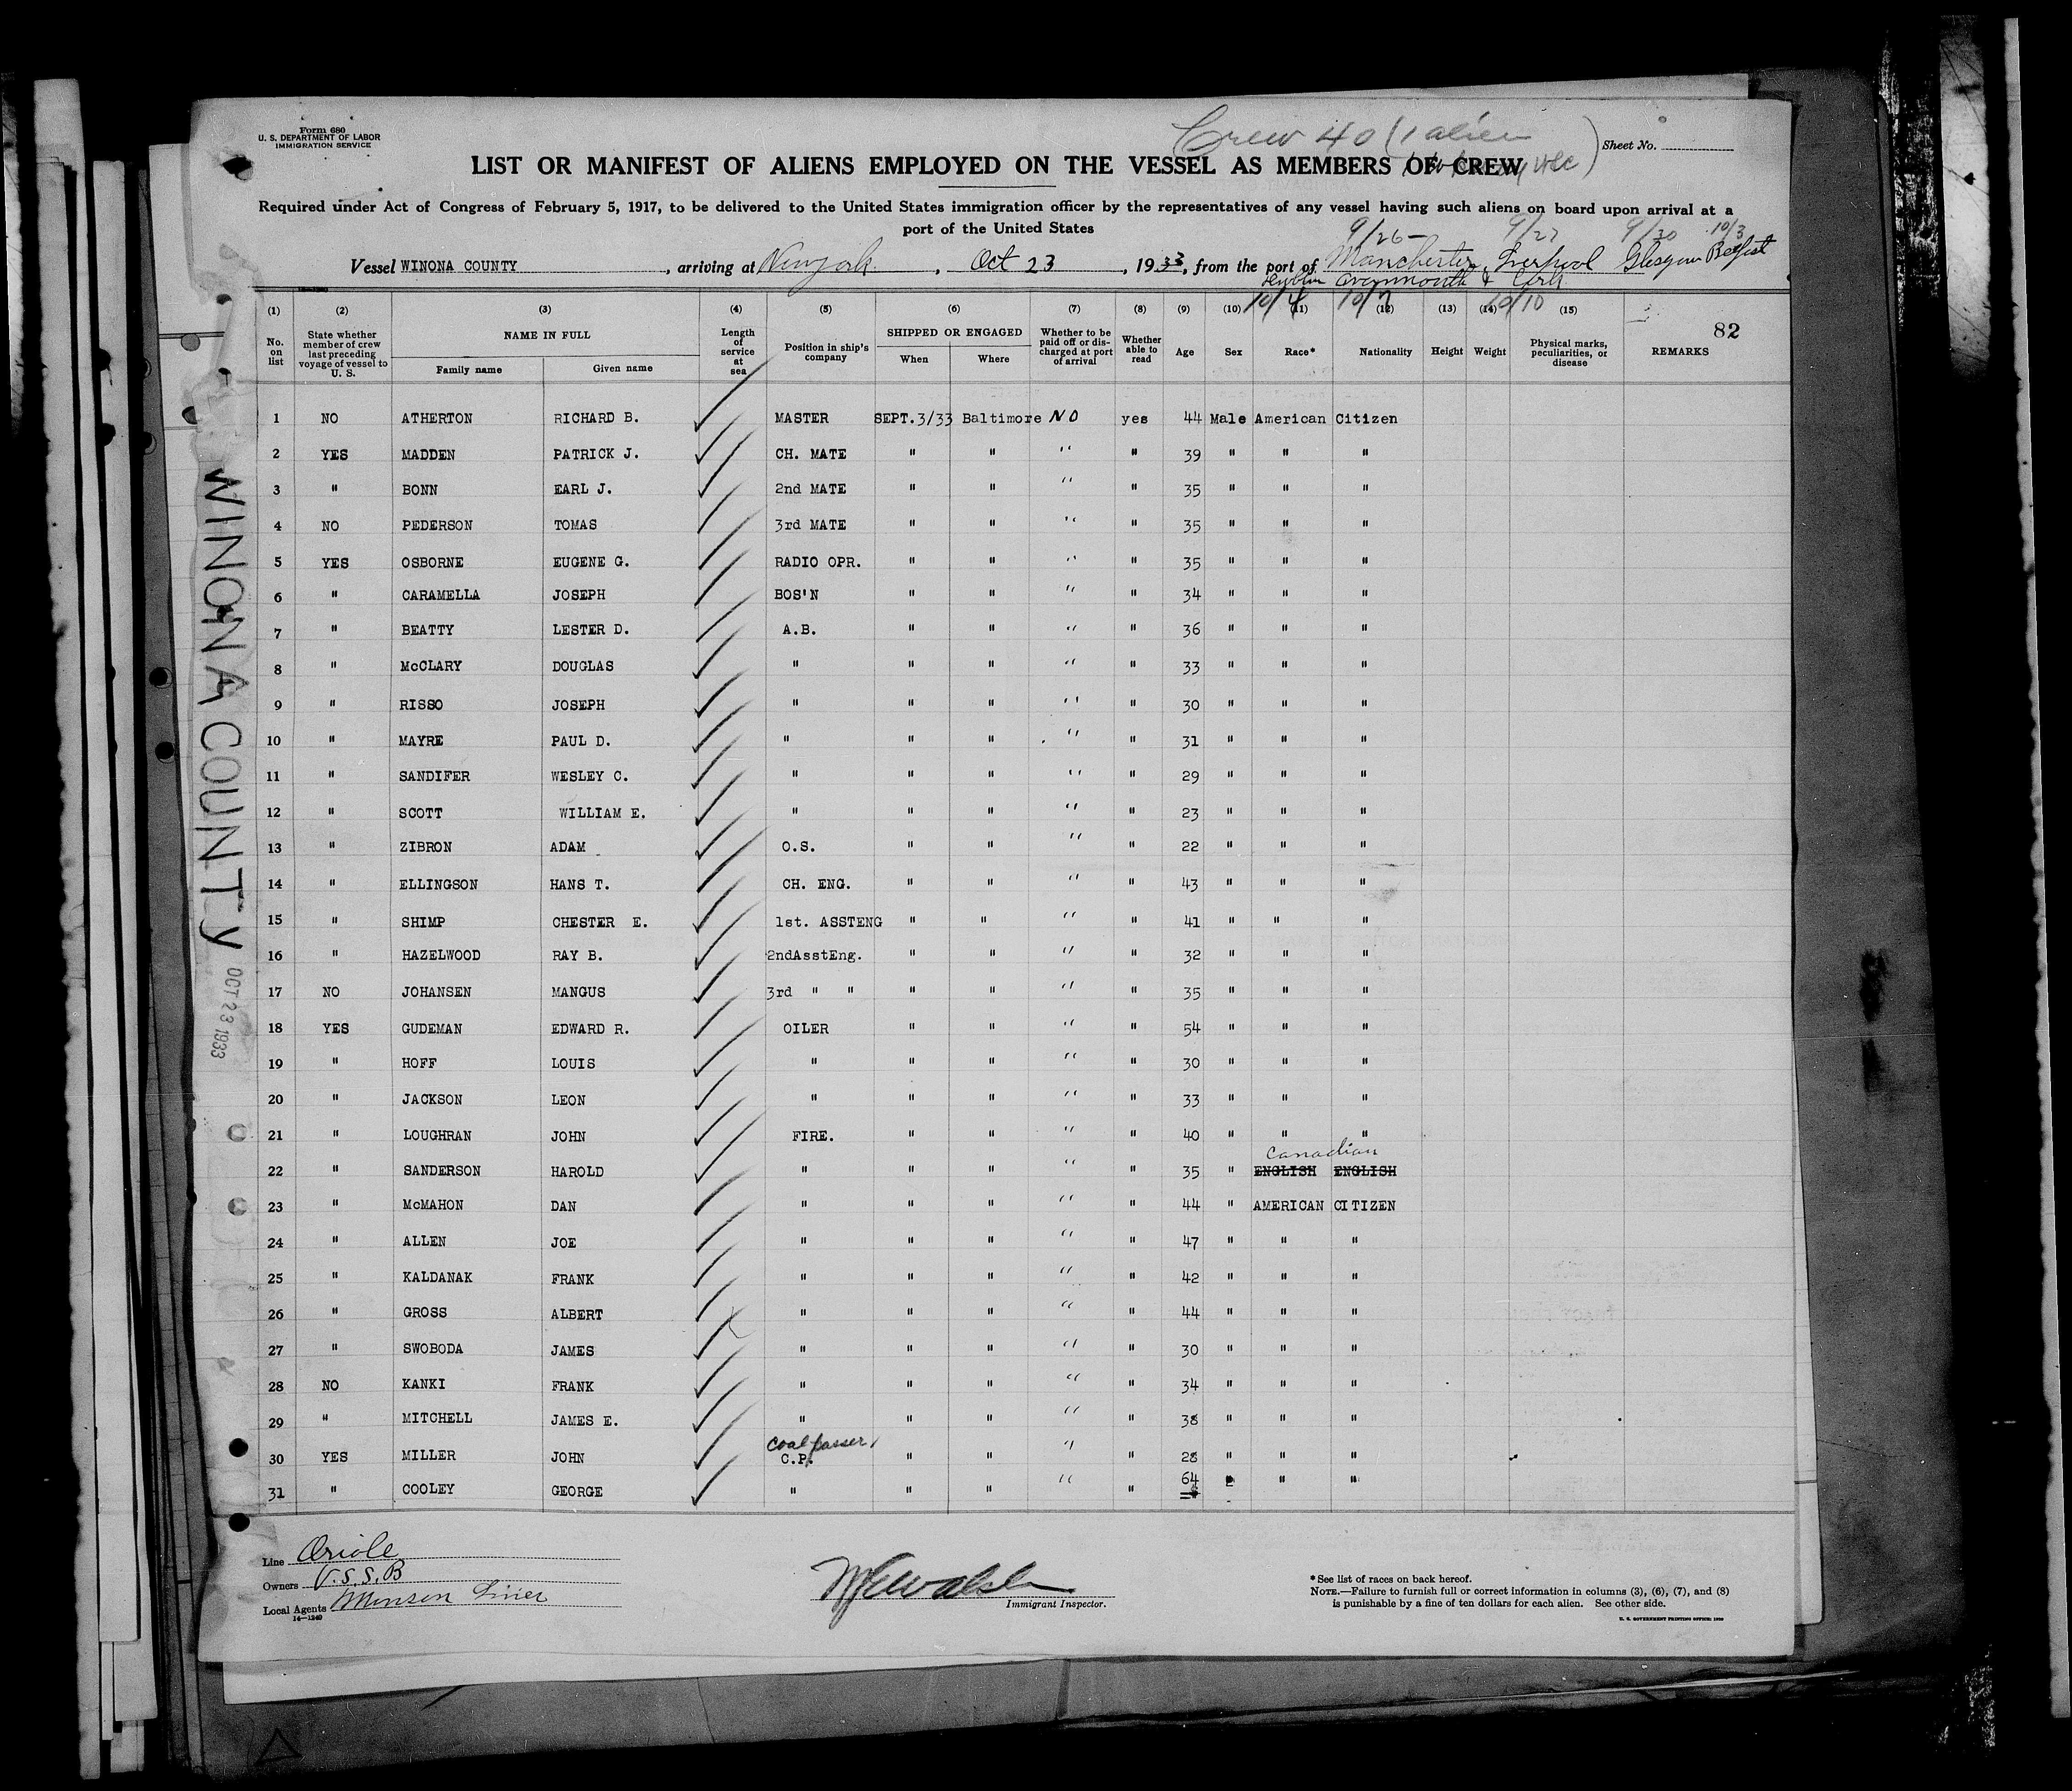 Form 680
U. S. DEPARTMENT OF LABOR
IMMIGRATION SERVICE
Crew 40 (1 alien
Sheet No.
LIST OR MANIFEST OF ALIENS EMPLOYED ON THE VESSEL AS MEMBERS OF CREW
Required under Act of Congress of February 5, 1917, to be delivered to the United States immigration officer by the representatives of any vessel having such aliens on board upon arrival at a
port of the United States
9/26 9/27 9/30 10/3
Vessel WINONA COUNTY, arriving at New York, Oct 23, 1933, from the port of Manchester, Liverpool Glasgow Belfast
Dublin Avonmouth & Cork
10/4 10/7 10/10
(1) (2) (3) (4) (5) (6) (7) (8) (9) (10) (11) (12) (13) (14) (15)
82
No. on list
State whether member of crew last preceding voyage of vessel to U. S.
NAME IN FULL
Family name
Given name
Length of service at sea
Position in ship's company
SHIPPED OR ENGAGED
When
Where
Whether to be paid off or discharged at port of arrival
Whether able to read
Age
Sex
Race*
Nationality
Height
Weight
Physical marks, peculiarities, or disease
REMARKS
1 NO ATHERTON RICHARD B. MASTER SEPT.3/33 Baltimore NO yes 44 Male American Citizen
2 YES MADDEN PATRICK J. CH. MATE " " " " 39 " " "
3 " BONN EARL J. 2nd MATE " " " " 35 " " "
4 NO PEDERSON TOMAS 3rd MATE " " " " 35 " " "
5 YES OSBORNE EUGENE G. RADIO OPR. " " " " 35 " " "
6 " CARAMELLA JOSEPH BOS'N " " " " 34 " " "
7 " BEATTY LESTER D. A.B. " " " " 36 " " "
8 " McCLARY DOUGLAS " " " " " 33 " " "
9 " RISSO JOSEPH " " " " " 30 " " "
10 " MAYRE PAUL D. " " " " " 31 " " "
11 " SANDIFER WESLEY C. " " " " " 29 " " "
12 " SCOTT WILLIAM E. " " " " " 23 " " "
13 " ZIBRON ADAM O.S. " " " " 22 " " "
14 " ELLINGSON HANS T. CH. ENG. " " " " 43 " " "
15 " SHIMP CHESTER E. 1st. ASSTENG " " " " 41 " " "
16 " HAZELWOOD RAY B. 2ndAsstEng. " " " " 32 " " "
17 NO JOHANSEN MANGUS 3rd " " " " " " 35 " " "
18 YES GUDEMAN EDWARD R. OILER " " " " 54 " " "
19 " HOFF LOUIS " " " " " 30 " " "
20 " JACKSON LEON " " " " " 33 " " "
21 " LOUGHRAN JOHN FIRE. " " " " 40 " " "
Canadian
22 " SANDERSON HAROLD " " " " " 35 " ENGLISH ENGLISH
23 " McMAHON DAN " " " " " 44 " AMERICAN CITIZEN
24 " ALLEN JOE " " " " " 47 " " "
25 " KALDANAK FRANK " " " " " 42 " " "
26 " GROSS ALBERT " " " " " 44 " " "
27 " SWOBODA JAMES " " " " " 30 " " "
28 NO KANKI FRANK " " " " " 34 " " "
29 " MITCHELL JAMES E. " " " " " 38 " " "
coal passer
30 YES MILLER JOHN C.P. " " " " 28 " " "
31 " COOLEY GEORGE " " " " " 64 " " "
WINONA COUNTY
OCT 23 1933
Line Oriole
Owners U.S.S.B
Local Agents Munson Line
14—1240
W E Walsh
Immigrant Inspector.
* See list of races on back hereof.
NOTE.—Failure to furnish full or correct information in columns (3), (6), (7), and (8)
is punishable by a fine of ten dollars for each alien. See other side.
U. S. GOVERNMENT PRINTING OFFICE: 1930